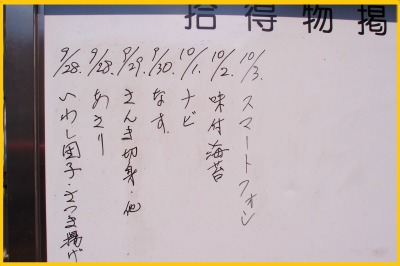 拾得物掲
10/3. スマートフォン
10/2. 味付海苔
10/1. ナビ
9/30. なす
9/29. さんき切身・他
9/28. あさり
9/28. いわし団子・さつま揚げ